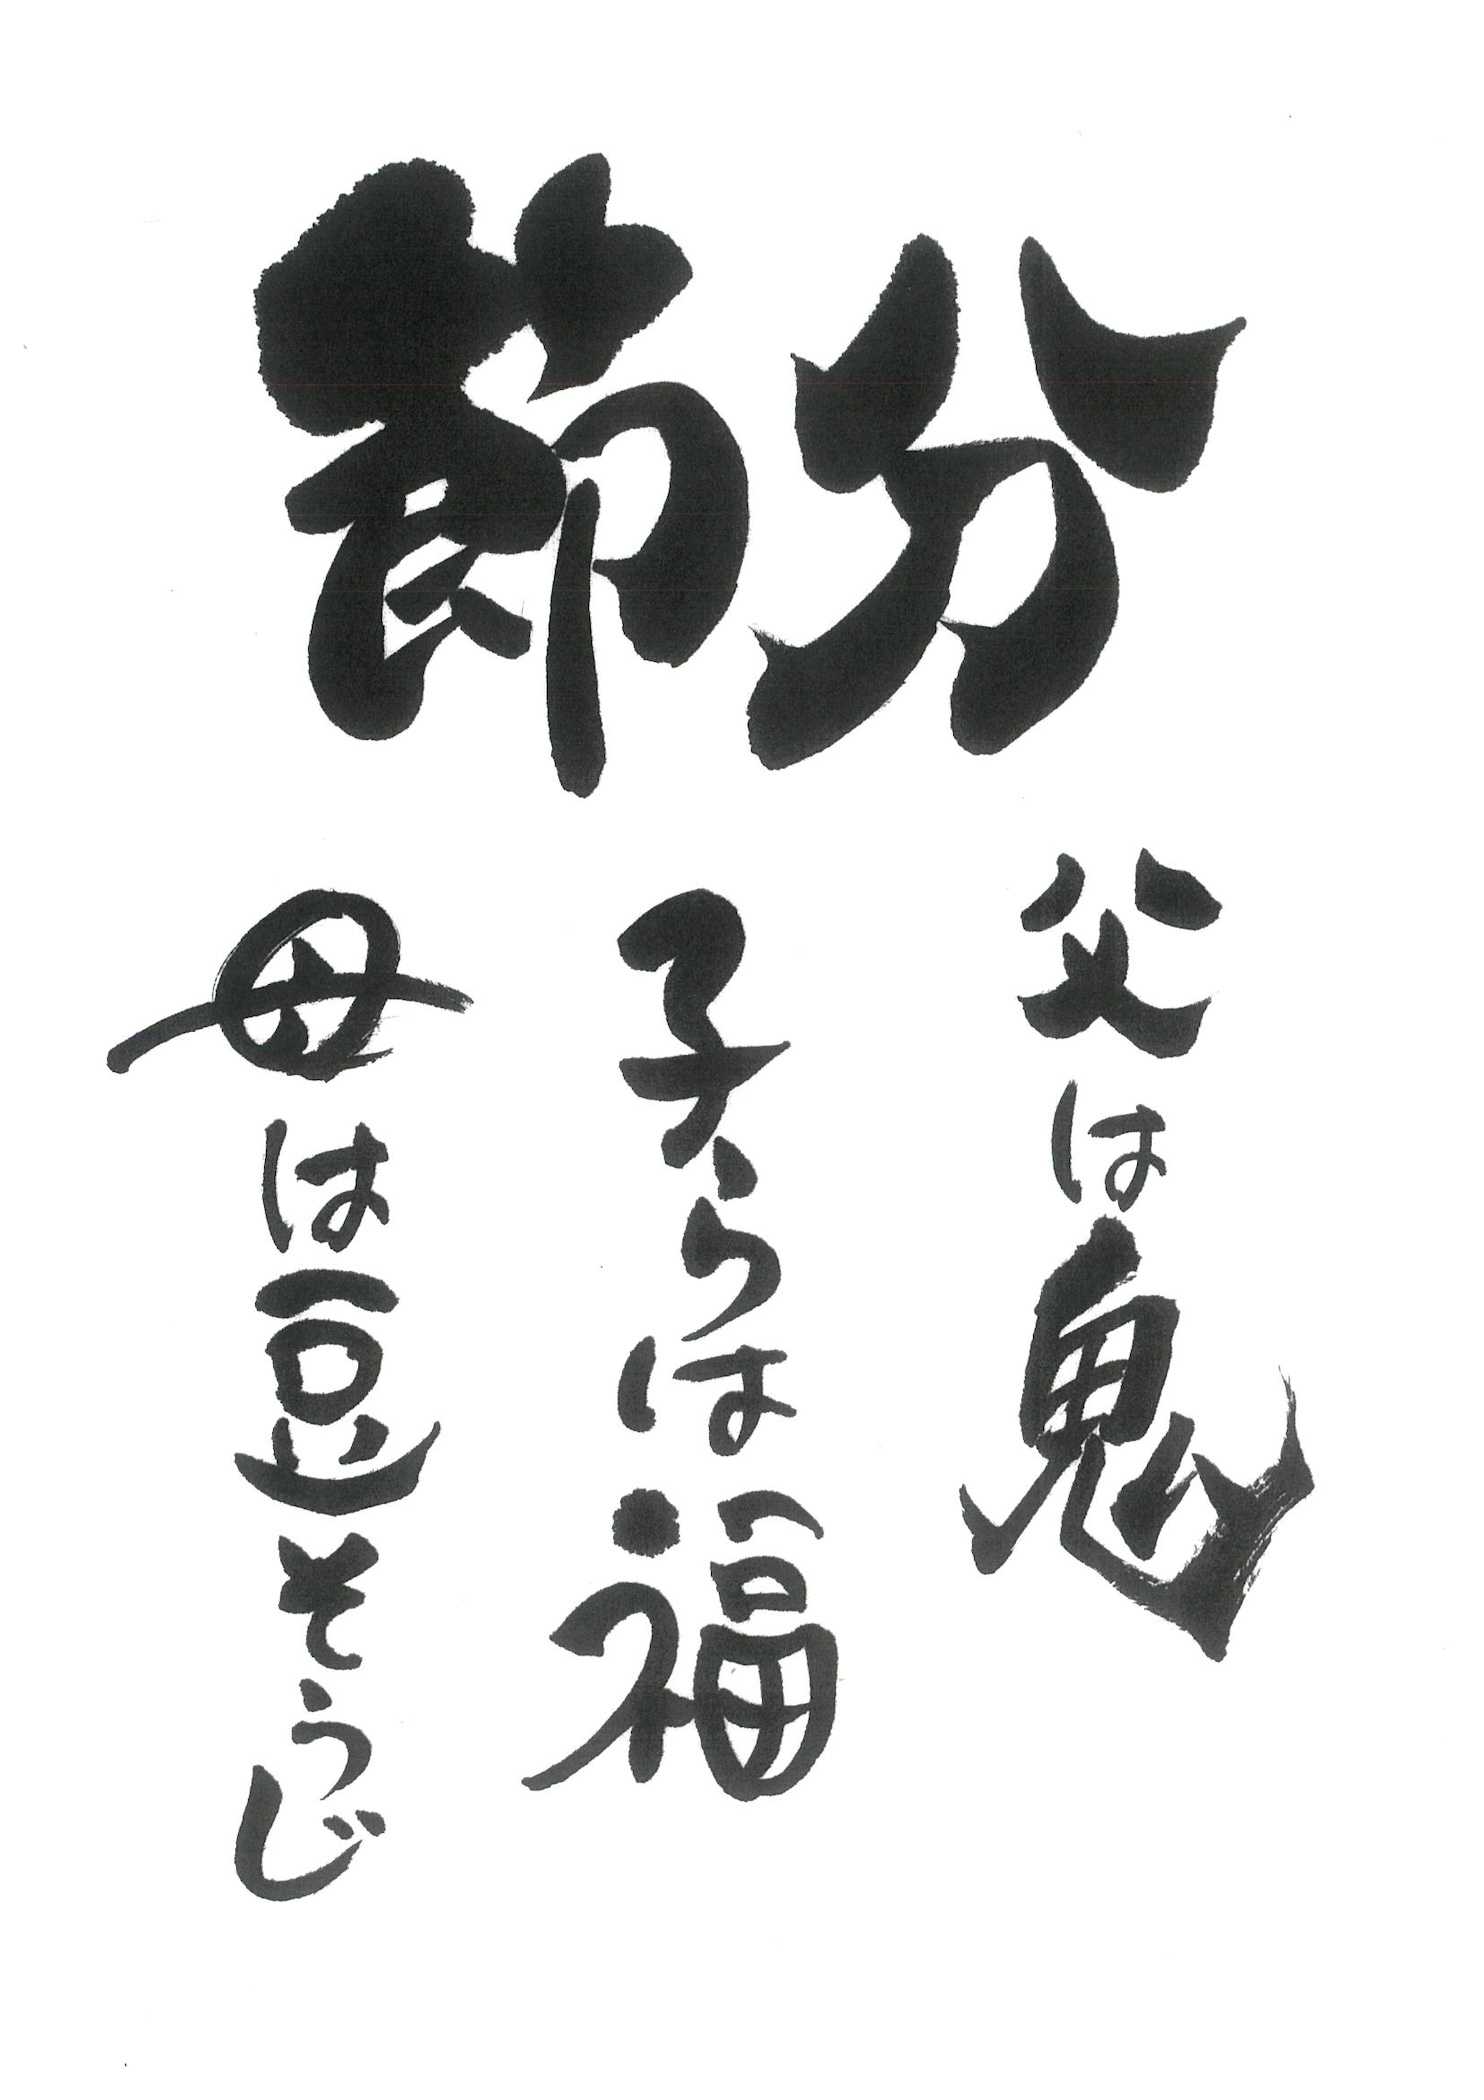 節分
父は鬼
子らは福
母は豆そうじ